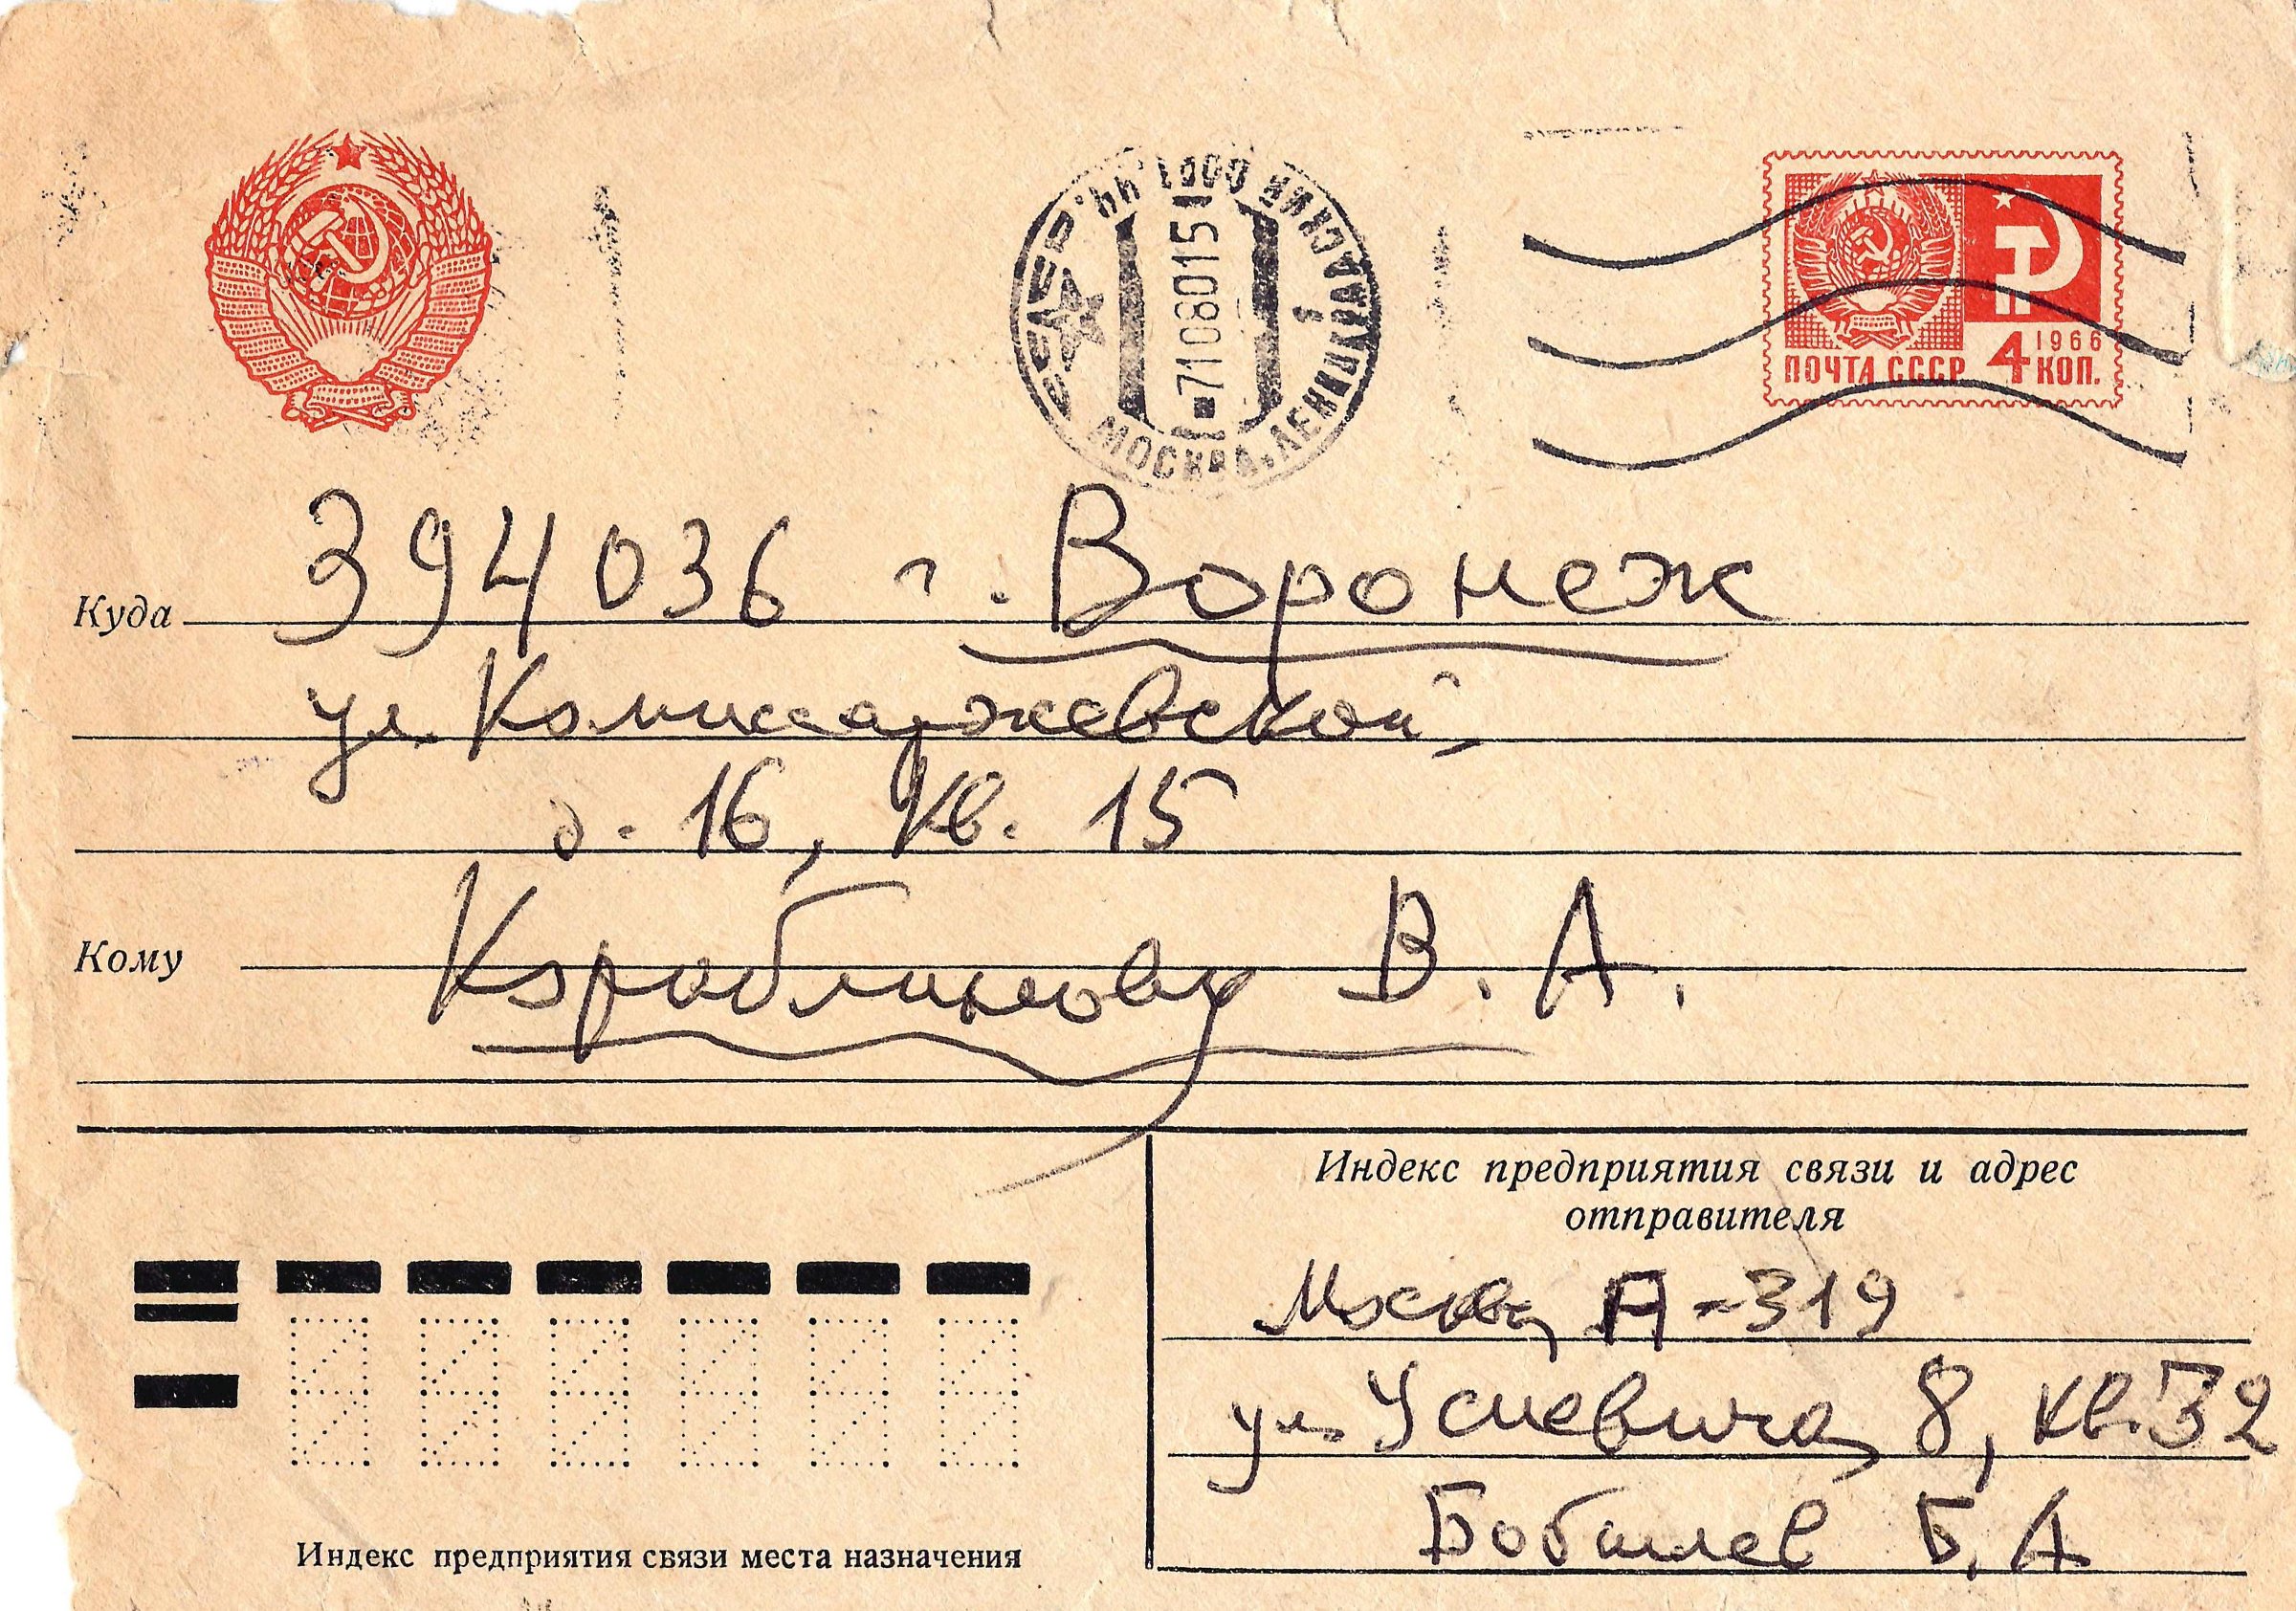 РСФСР
МОСКВА-ЛЕНИНГРАДСКИЙ
-7108015
1966
ПОЧТА СССР 4 КОП.
394036 г. Воронеж
Куда
ул. Комиссаржевской,
д. 16, кв. 15
Кому Кораблинову В. А.
Индекс предприятия связи и адрес
отправителя
Москва А-319
ул. Усиевича 8, кв. 32
Б. А.
Индекс предприятия связи места назначения